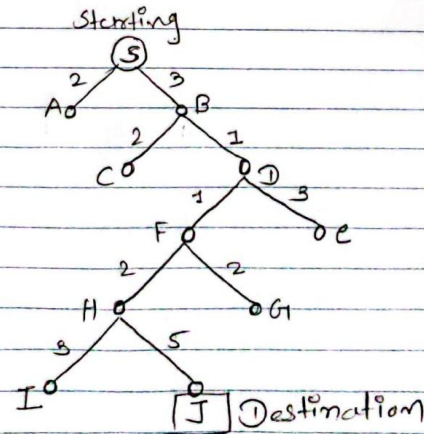 Starting
S
2 3
A B
2 1
C D
1 3
F e
2 2
H G
3 5
I J Destination